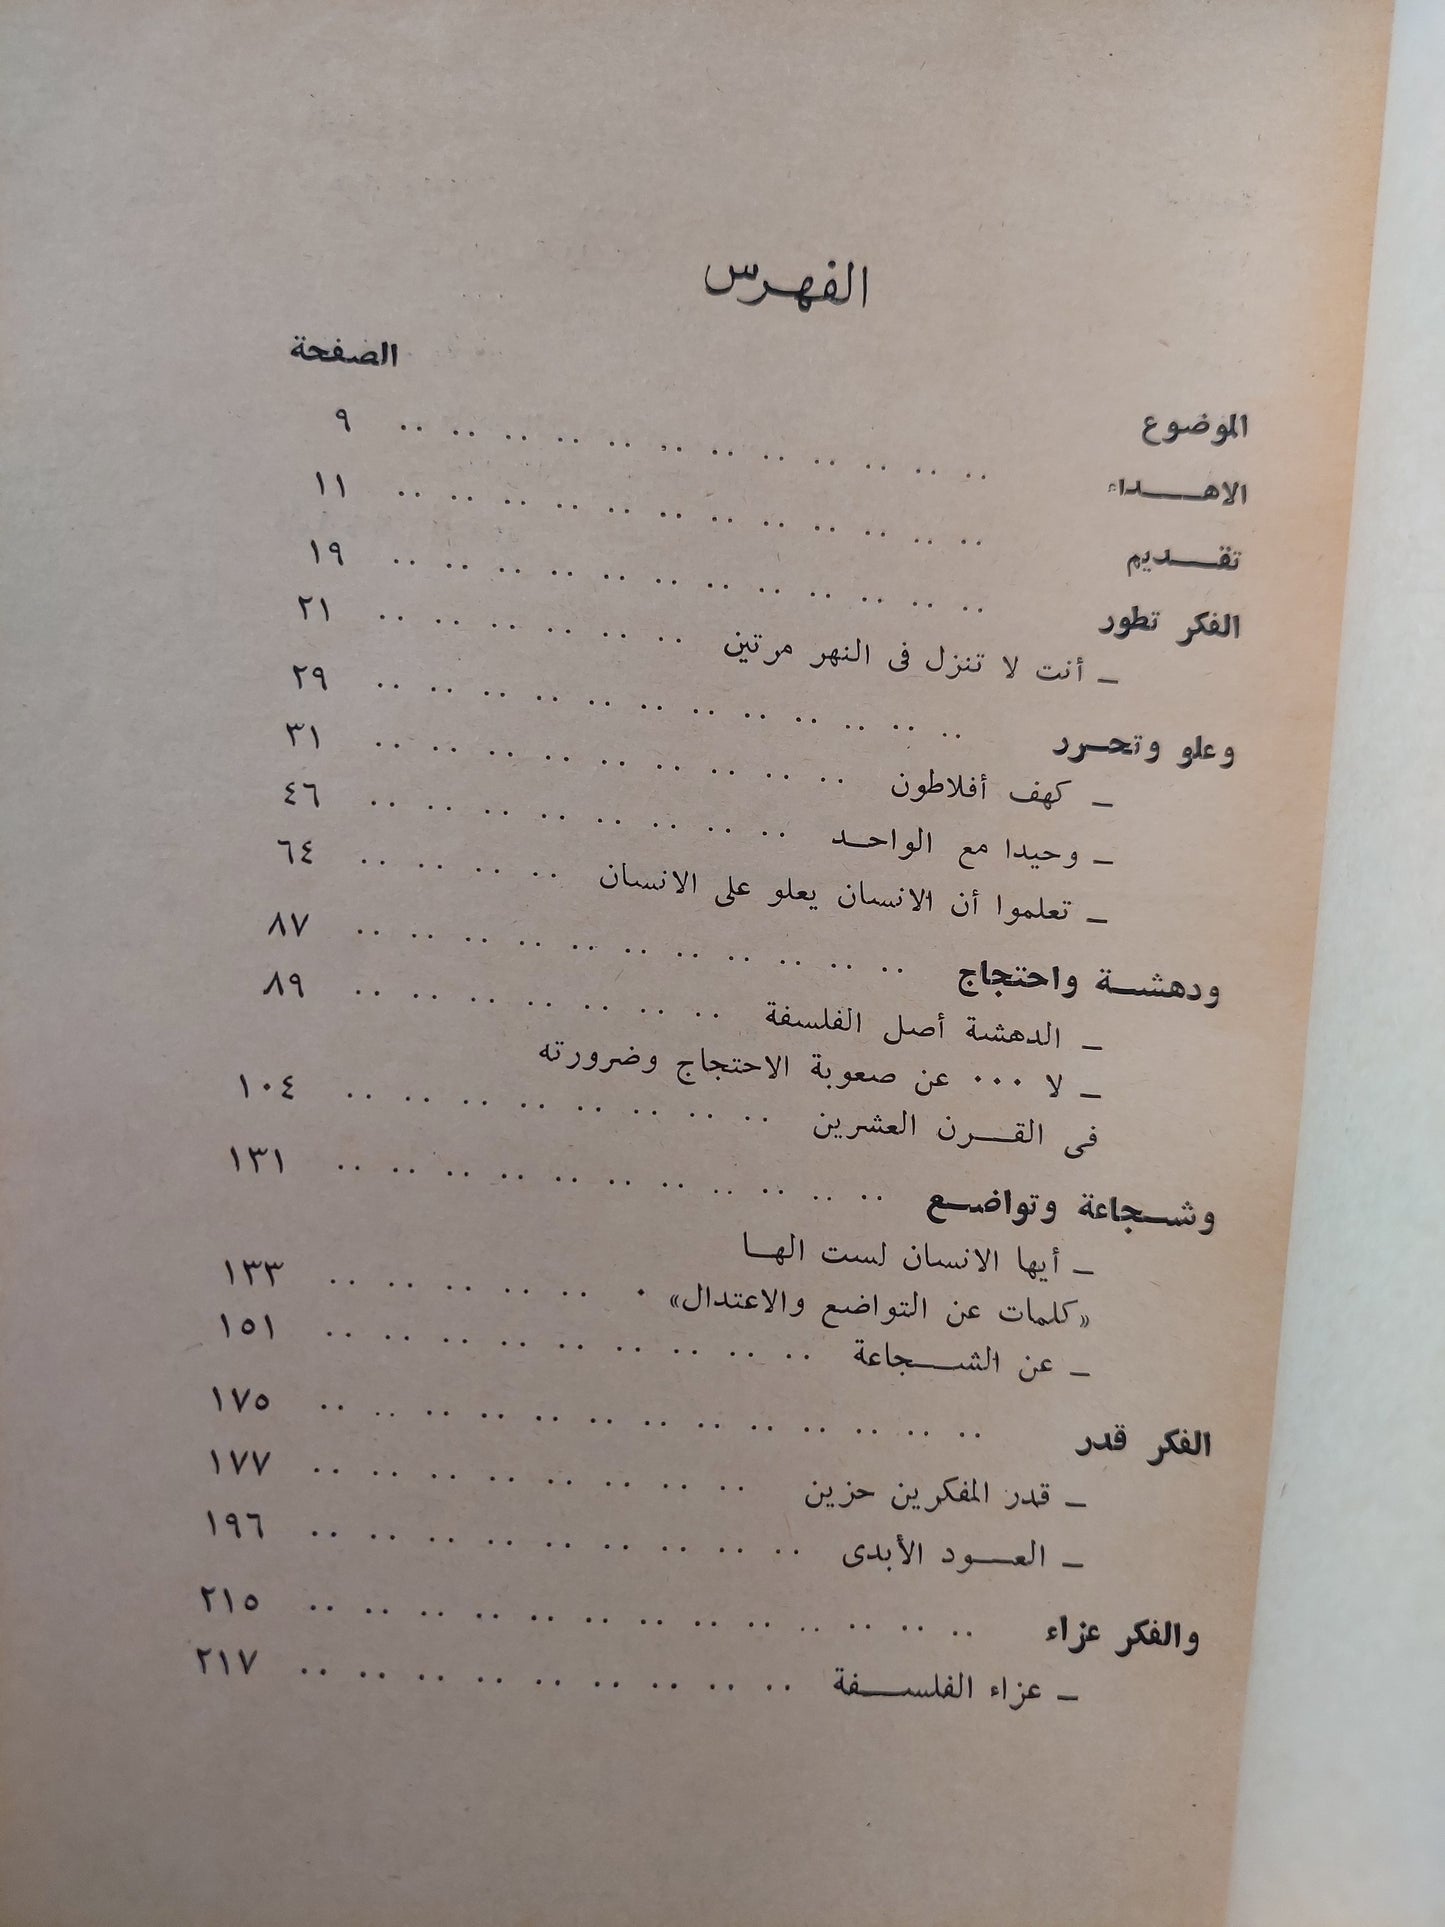 الفهرس
الموضوع الصفحة
الاهداء ٩
تقديم ١١
الفكر تطور ١٩
ــ أنت لا تنزل فى النهر مرتين ٢١
وعلو وتحرر ٢٩
ــ كهف أفلاطون ٣١
ــ وحيدا مع الواحد ٤٦
ــ تعلموا أن الانسان يعلو على الانسان ٦٤
ودهشة واحتجاج ٨٧
ــ الدهشة أصل الفلسفة ٨٩
ــ لا ٠٠٠ عن صعوبة الاحتجاج وضرورته
فى القرن العشرين ١٠٤
وشجاعة وتواضع ١٣١
ــ أيها الانسان لست الها
«كلمات عن التواضع والاعتدال» ١٣٣
ــ عن الشجاعة ١٥١
الفكر قدر ١٧٥
ــ قدر المفكرين حزين ١٧٧
ــ العود الأبدى ١٩٦
والفكر عزاء ٢١٥
ــ عزاء الفلسفة ٢١٧